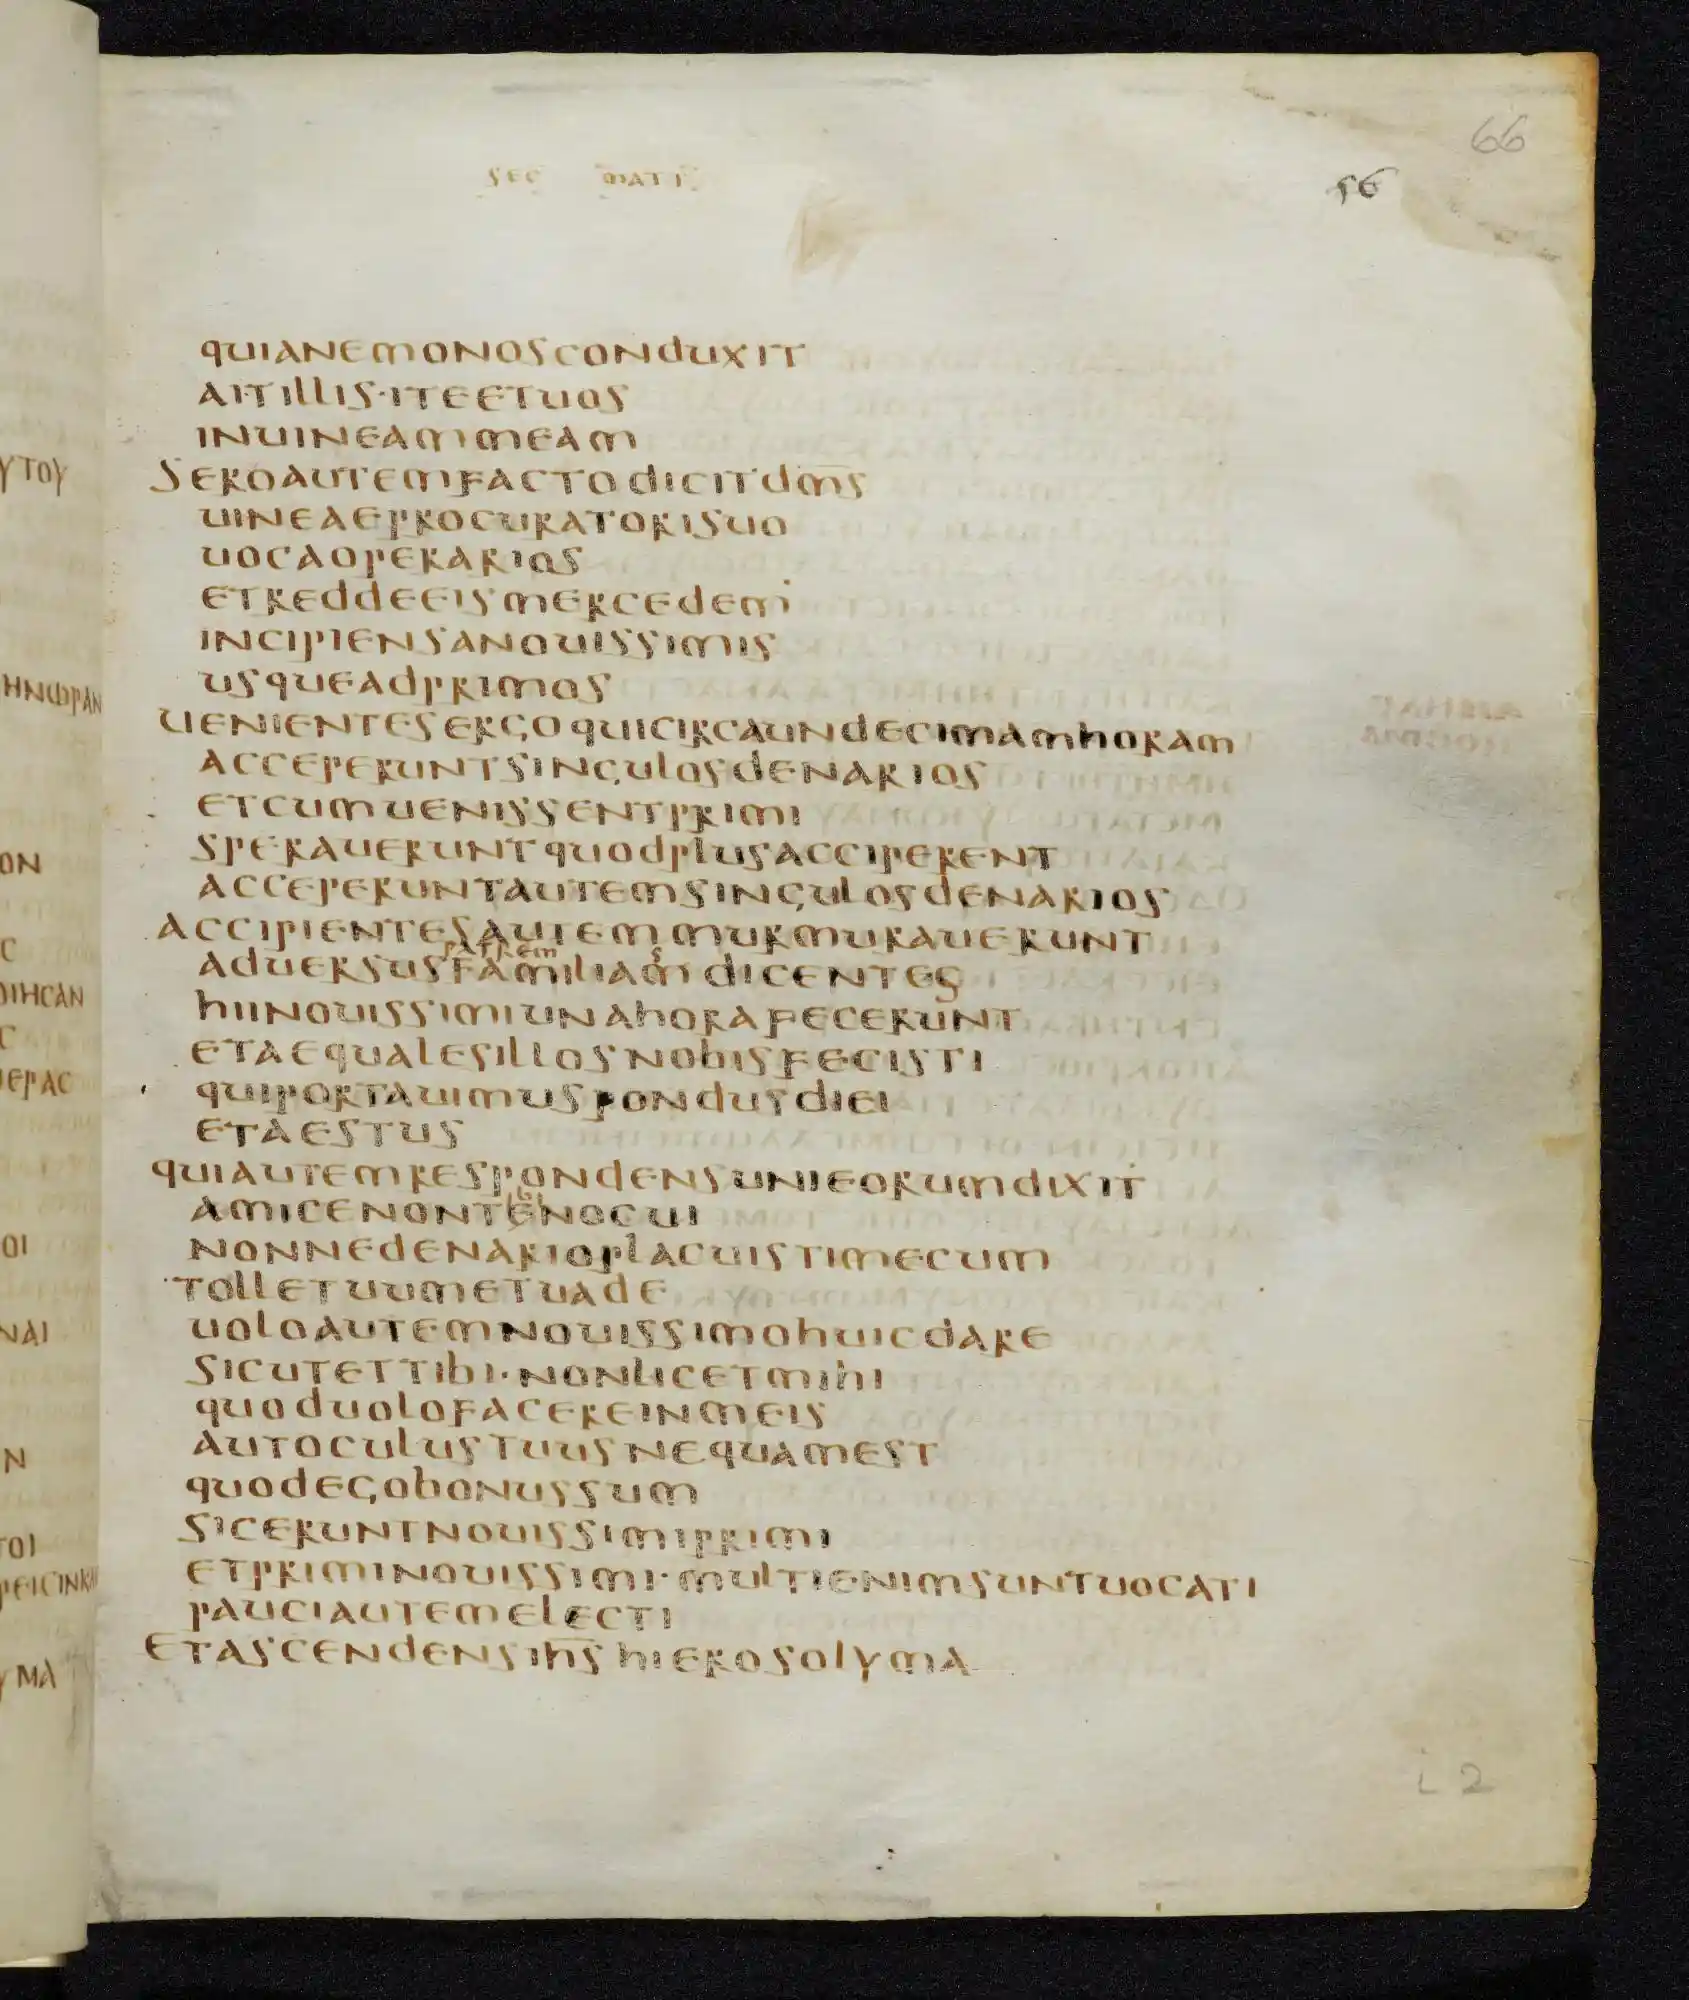 SEC MATT
66
56
QUIANEMONOSCONDUXIT
AITILLIS·ITEETUOS
INUINEAMMEAM
SEROAUTEMFACTODICITDM̅S
UINEAEPROCURATORISUO
UOCAOPERARIOS
ETREDDEEISMERCEDEM
INCIPIENSANOUISSIMIS
USQUEADPRIMOS
UENIENTESERGOQUICIRCAUNDECIMAMHORAM
ACCEPERUNTSINGULOSDENARIOS
ETCUMUENISSENTPRIMI
SPERAUERUNTQUODPLUSACCIPERENT
ACCEPERUNTAUTEMSINGULOSDENARIOS
ACCIPIENTESAUTEMMURMURAUERUNT
PATREM S
ADUERSUSFAMILIAMDICENTES
HIINOUISSIMIUNAHORAFECERUNT
ETAEQUALESILLOSNOBISFECISTI
QUIPORTAUIMUSPONDUSDIEI
ETAESTUS
QUIAUTEMRESPONDENSUNIEORUMDIXIT
AMICENONTENOCUI
NONNEDENARIOPLACUISTIMECUM
TOLLETUUMETUADE
UOLOAUTEMNOUISSIMOHUICDARE
SICUTETTIBI·NONLICETMIHI
QUODUOLOFACEREINMEIS
AUTOCULUSTUUSNEQUAMEST
QUODEGOBONUSSUM
SICERUNTNOUISSIMIPRIMI
ETPRIMINOUISSIMI·MULTIENIMSUNTUOCATI
PAUCIAUTEMELECTI
ETASCENDENSIH̅SHIEROSOLYMA
L 2